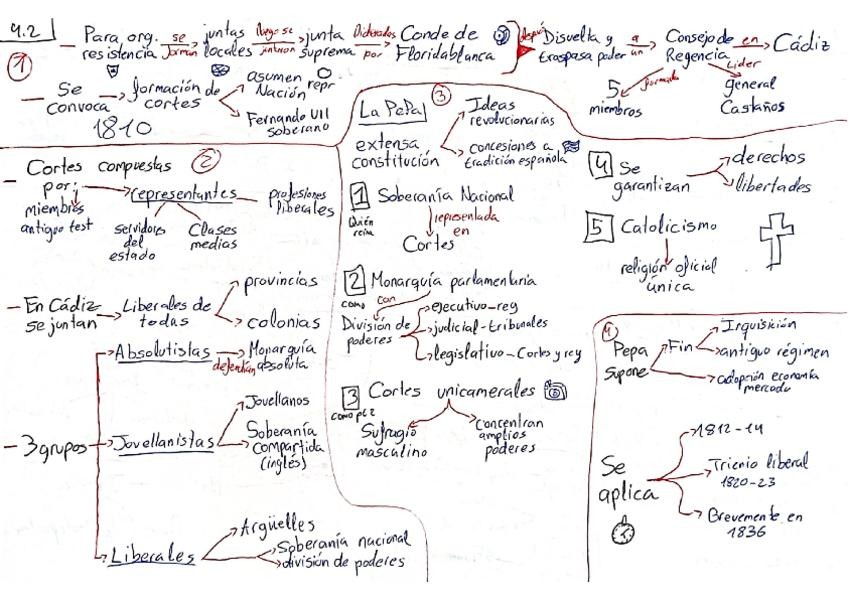 4.2
1
- Para org. resistencia se forman juntas locales luego se juntaron junta suprema Dictarados por Conde de Floridablanca
despué Disuelta y traspasa poder a un Consejo de Regencia en Cádiz
formado 5 miembros
Lider general Castaños
- Se convoca 1810 formación de cortes
asumen repr Nación
Fernando VII soberano
2
- Cortes compuestas por:
miembros antiguo test
representantes
servidores del estado
Clases medias
profesiones liberales
- En Cádiz se juntan
Liberales de todas
provincias
colonias
- 3 grupos
Absolutistas defendían Monarquía absoluta
Jovellanistas
Jovellanos
Soberanía compartida (inglés)
Liberales
Argüelles
Soberanía nacional
división de poderes
3
La Pepa
extensa constitución
Ideas revolucionarias
concesiones a tradición española
1 Soberanía Nacional
Quién reina
representada en
Cortes
2 Monarquía parlamentaria
como
con
División de poderes
ejecutivo-rey
judicial-tribunales
legislativo-Cortes y rey
3 Cortes unicamerales
como pt 2
Sufragio masculino
concentran amplios poderes
4 Se garantizan
derechos
libertades
5 Catolicismo
religión oficial única
4
Pepa supone
Fin
Inquisición
antiguo régimen
adopción economía mercado
Se aplica
1812-14
Trienio liberal 1820-23
Brevemente en 1836